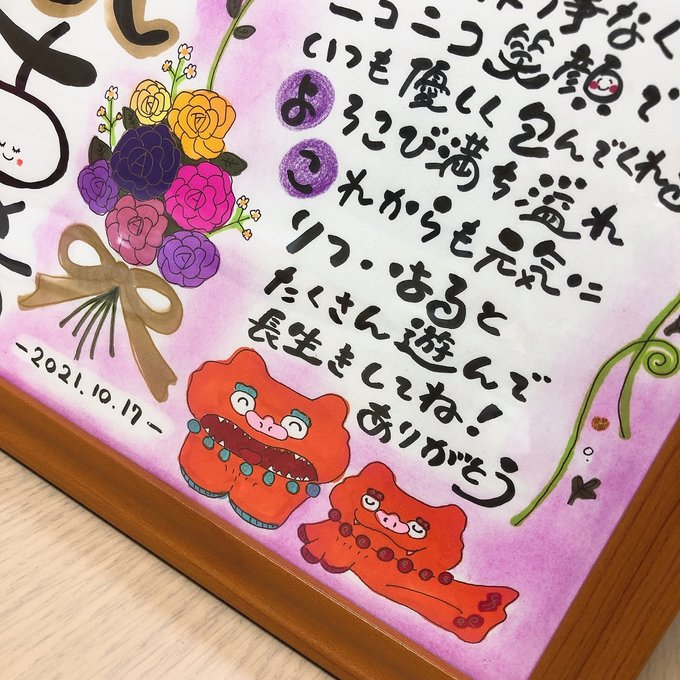 なく
ニコニコ笑顔で
いつも優しく包んでくれる
よろこび満ち溢れ
これからも元気に
りつ・はると
たくさん遊んで
長生きしてね!
ありがとう
-2021.10.17-